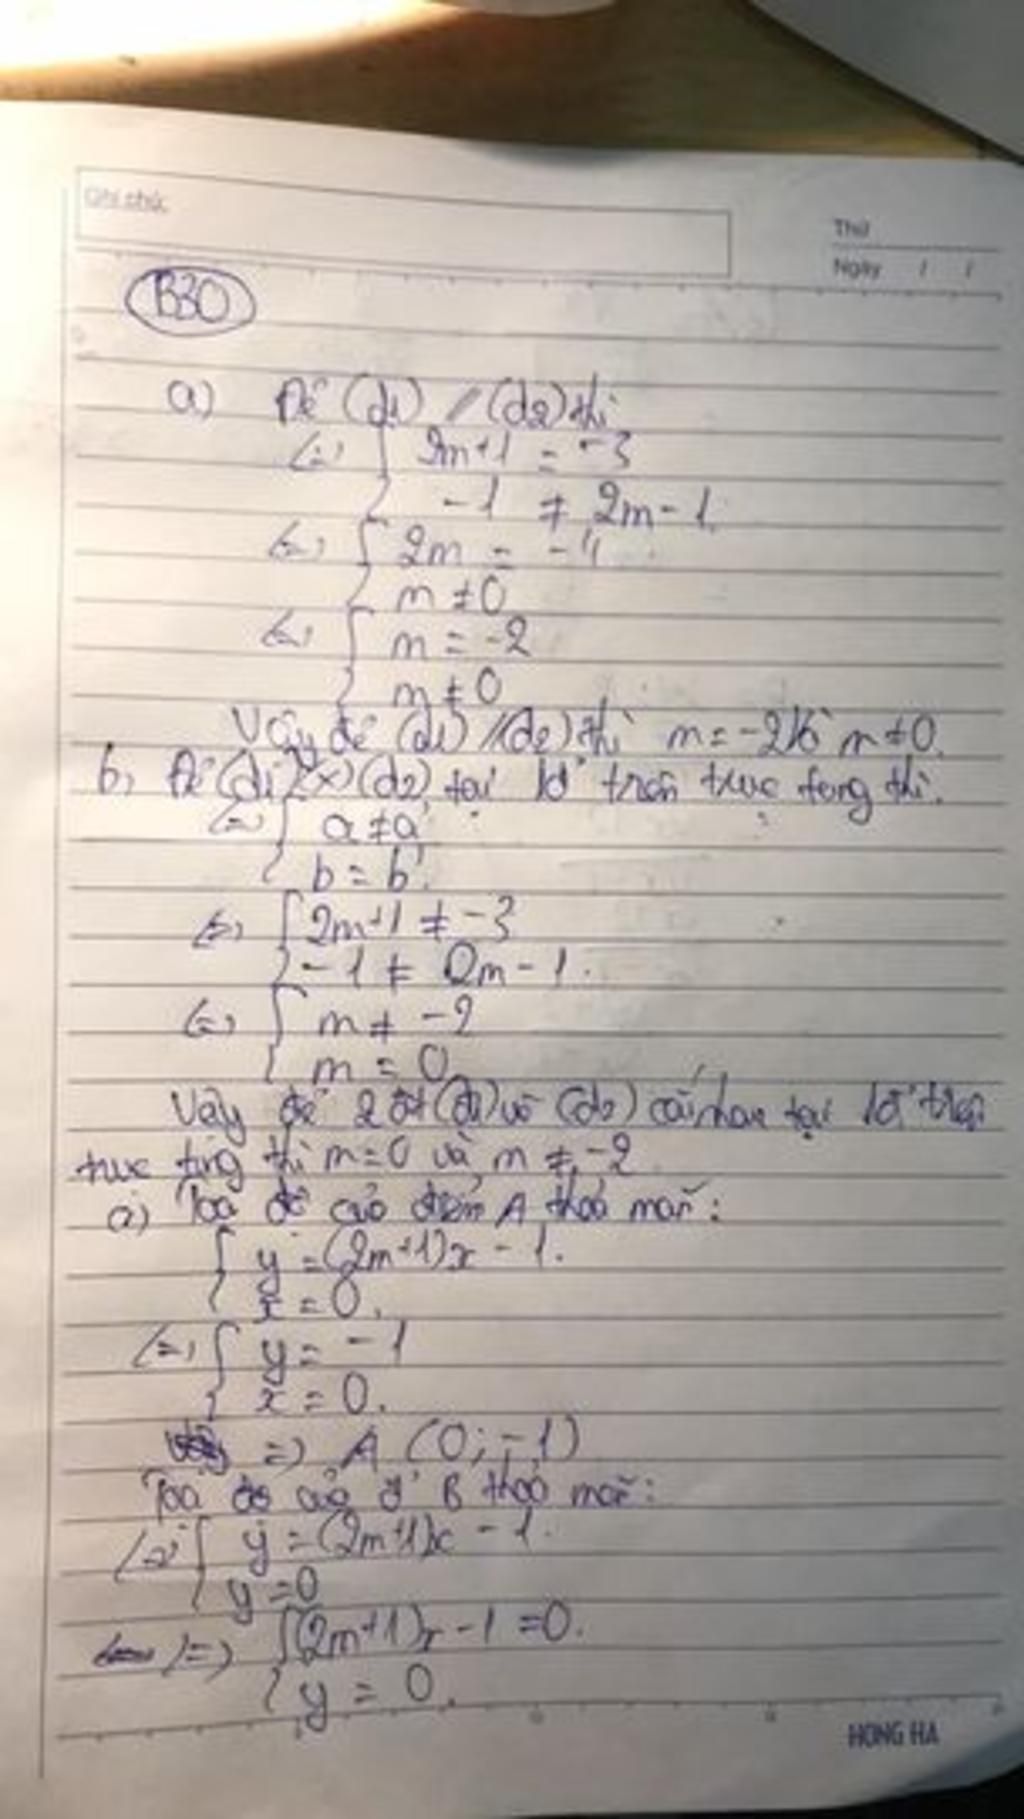 Ghi chú:
Thứ
Ngày / /
B30
a) Để (d1) // (d2) thì
<=> { 2m+1 = -3
-1 ≠ 2m-1.
<=> { 2m = -4
m ≠ 0
<=> { m = -2
m ≠ 0
Vậy để (d1) // (d2) thì m = -2 và m ≠ 0.
b, Để (d1) (x) (d2) tại 1đ' trên trục tung thì.
<=> { a ≠ a'
b = b'.
<=> { 2m+1 ≠ -3
-1 ≠ 2m-1.
<=> { m ≠ -2
m = 0
Vậy để 2 đt (d1) và (d2) cắt nhau tại 1đ' trên
trục tung thì m=0 và m ≠ -2
a) Toạ độ của điểm A thoả mãn:
{ y = (2m+1)x - 1.
x = 0.
<=> { y = -1
x = 0.
=> A (0; -1)
Toạ độ của đ' B thoả mãn:
<=> { y = (2m+1)x - 1.
y = 0
<=> { (2m+1)x - 1 = 0.
y = 0.
HONG HA